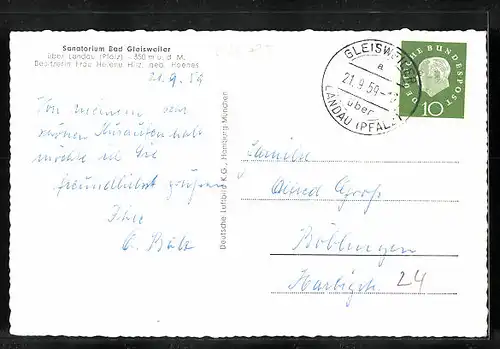 Sanatorium Bad Gleisweiler
über Landau (Pfalz) - 350 m ü. d. M.
Besitzerin Frau Helene Hitz, geb. Hoenes
21.9.59
Von meinem sehr
schönen Kuraufenthalt
möchte ich Sie
freundlichst grüßen
Ihre
Deutsche Luftbild K.G., Hamburg-München
GLEISWEILER
a
21.9.59-
über
LANDAU (PFALZ)
DEUTSCHE BUNDESPOST
10
Familie
Alfred Groß
Böblingen
24